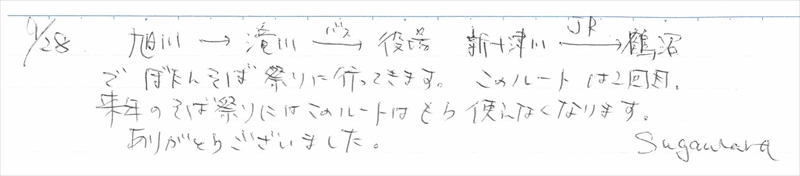 9/28 旭川 → 滝川 バス→ 役場 新十津川 JR→ 鶴沼
で ぼたんそば 祭りに行ってきます。 このルートは2回目。
来年のそば祭りにはこのルートはもう使えなくなります。
ありがとうございました。 Sugawara